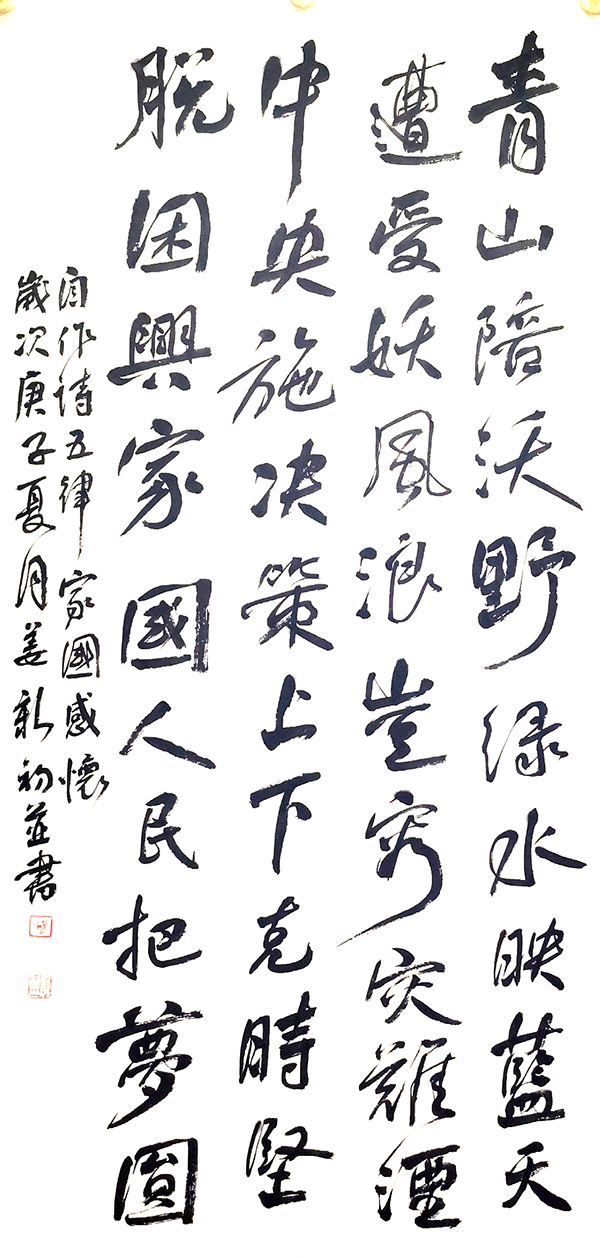 青山陪沃野绿水映蓝天
遭受妖風浪豈容災難湮
中央施决策上下克時堅
脱困興家國人民把夢圆
自作詩五律家國感懷
歲次庚子夏月姜新初並書